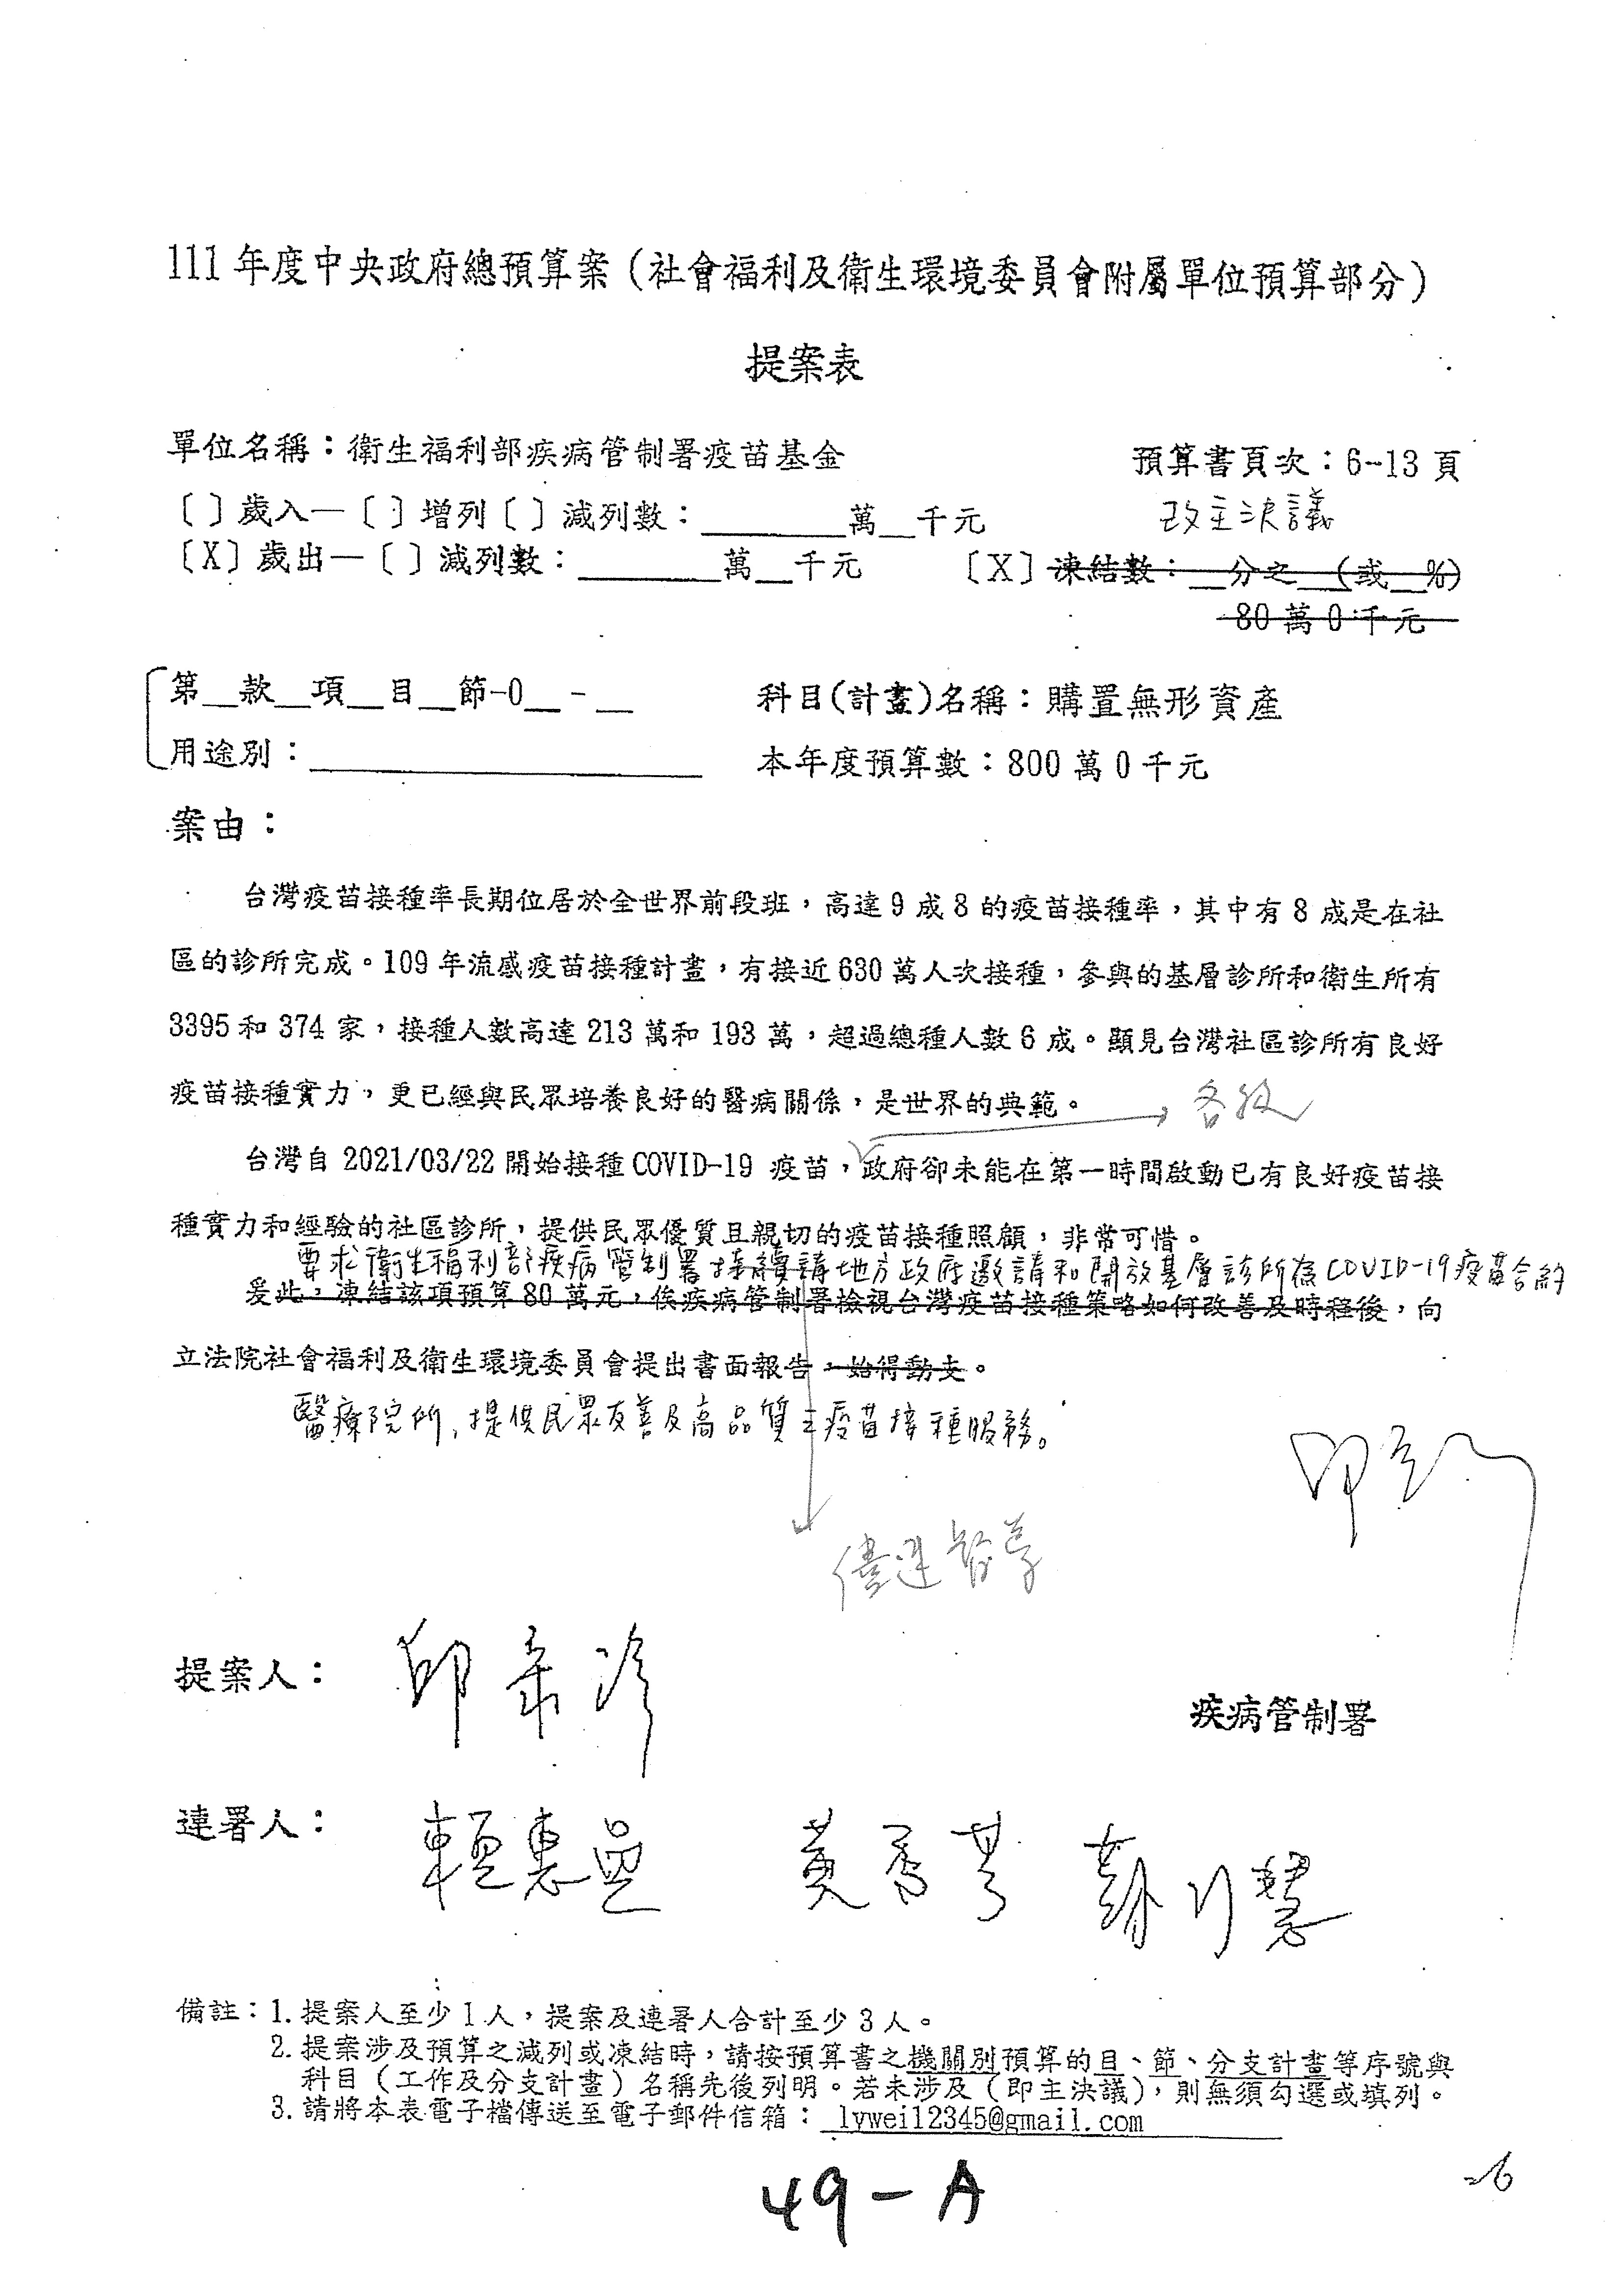 111 年度中央政府總預算案（社會福利及衛生環境委員會附屬單位預算部分）
提案表
單位名稱：衛生福利部疾病管制署疫苗基金
預算書頁次：6-13 頁
〔 〕歲入—〔 〕增列〔 〕減列數：________萬__千元
改主決議
〔X〕歲出—〔 〕減列數：________萬__千元
〔X〕凍結數：__分之__(或__%)
80 萬 0 千元
第__款__項__目__節-0__-__
科目(計畫)名稱：購置無形資產
用途別：
本年度預算數：800 萬 0 千元
案由：
台灣疫苗接種率長期位居於全世界前段班，高達 9 成 8 的疫苗接種率，其中有 8 成是在社
區的診所完成。109 年流感疫苗接種計畫，有接近 630 萬人次接種，參與的基層診所和衛生所有
3395 和 374 家，接種人數高達 213 萬和 193 萬，超過總種人數 6 成。顯見台灣社區診所有良好
疫苗接種實力，更已經與民眾培養良好的醫病關係，是世界的典範。
各級
台灣自 2021/03/22 開始接種 COVID-19 疫苗，政府卻未能在第一時間啟動已有良好疫苗接
種實力和經驗的社區診所，提供民眾優質且親切的疫苗接種照顧，非常可惜。
要求衛生福利部疾病管制署持續請地方政府邀請和開放基層診所為COVID-19疫苗合約
爰此，凍結該項預算 80 萬元，俟疾病管制署檢視台灣疫苗接種策略如何改善及時程後，向
立法院社會福利及衛生環境委員會提出書面報告，始得動支。
醫療院所，提供民眾友善及高品質之疫苗接種服務。
提案人：
疾病管制署
連署人：
賴惠員 黃秀芳 蘇巧慧
備註：1. 提案人至少 1 人，提案及連署人合計至少 3 人。
2. 提案涉及預算之減列或凍結時，請按預算書之機關別預算的目、節、分支計畫等序號與
科目（工作及分支計畫）名稱先後列明。若未涉及（即主決議），則無須勾選或填列。
3. 請將本表電子檔傳送至電子郵件信箱：lywei12345@gmail.com
49-A